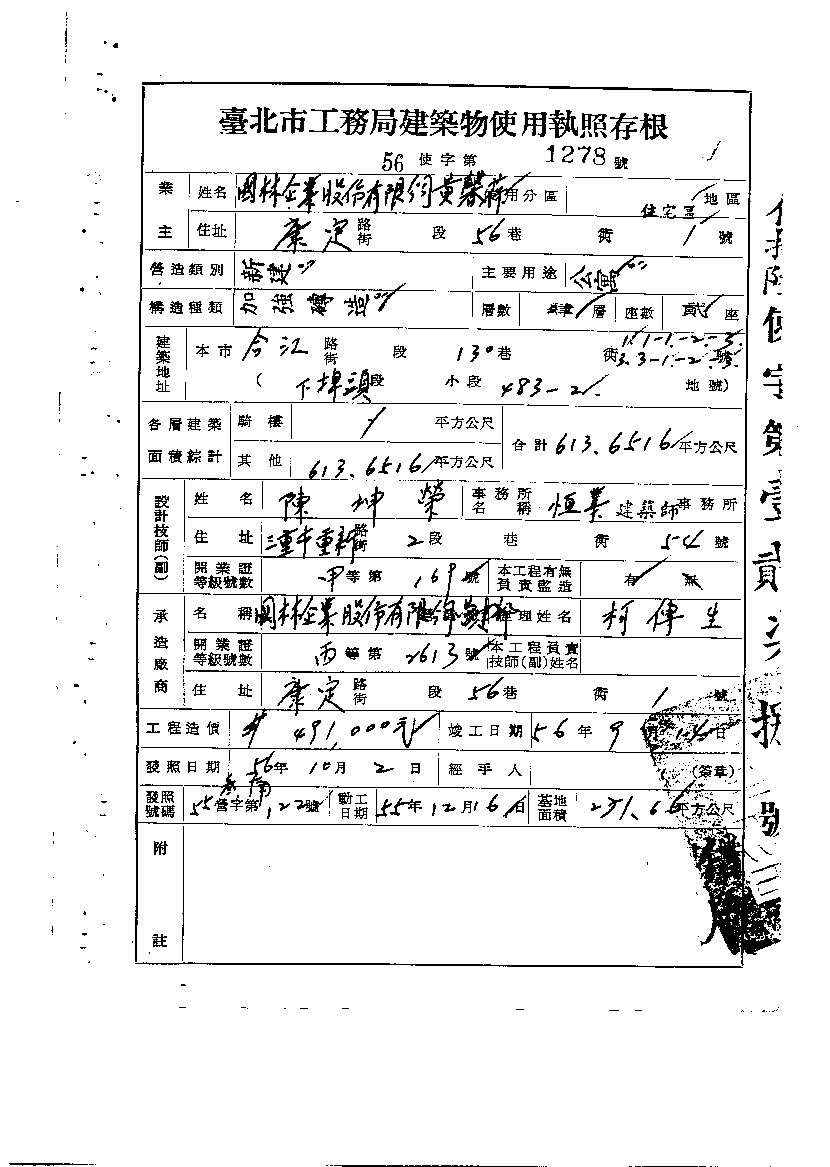 臺北市工務局建築物使用執照存根
56 使字第 1278 號
業主 姓名 國林企業股份有限公司黃馨 用分區 住宅區 地區
住址 康定 路街 段 56巷 衖 1 號
營造類別 新建 主要用途 公寓
構造種類 加強磚造 層數 肆 層 座數 貳 座
建築地址 本市 合江 路街 段 130巷 衖 1.1-1.-2.-3. 3.3-1.-2.-3. 號
( 下埤頭段 小段 483-2 地號)
各層建築面積綜計 騎樓 / 平方公尺 合計 613.6516 平方公尺
其他 613.6516 平方公尺
設計技師(副) 姓名 陳坤榮 事務所名稱 恒業 建築師 事務所
住址 三重市重新 路街 2 段 巷 衖 54 號
開業證等級號數 甲等第 169 號 本工程有無負責監造 有 無
承造廠商 名稱 國林企業股份有限公司 經理姓名 柯傳生
開業證等級號數 丙等第 2613 號 本工程負責技師(副)姓名
住址 康定 路街 段 56巷 衖 1 號
工程造價 # 491,000元 竣工日期 56年9月 日
發照日期 56年10月2日 經手人 (簽章)
發照號碼 55營字第 122號 動工日期 55年12月16日 基地面積 231.66 平方公尺
附註
使字第壹貳 號